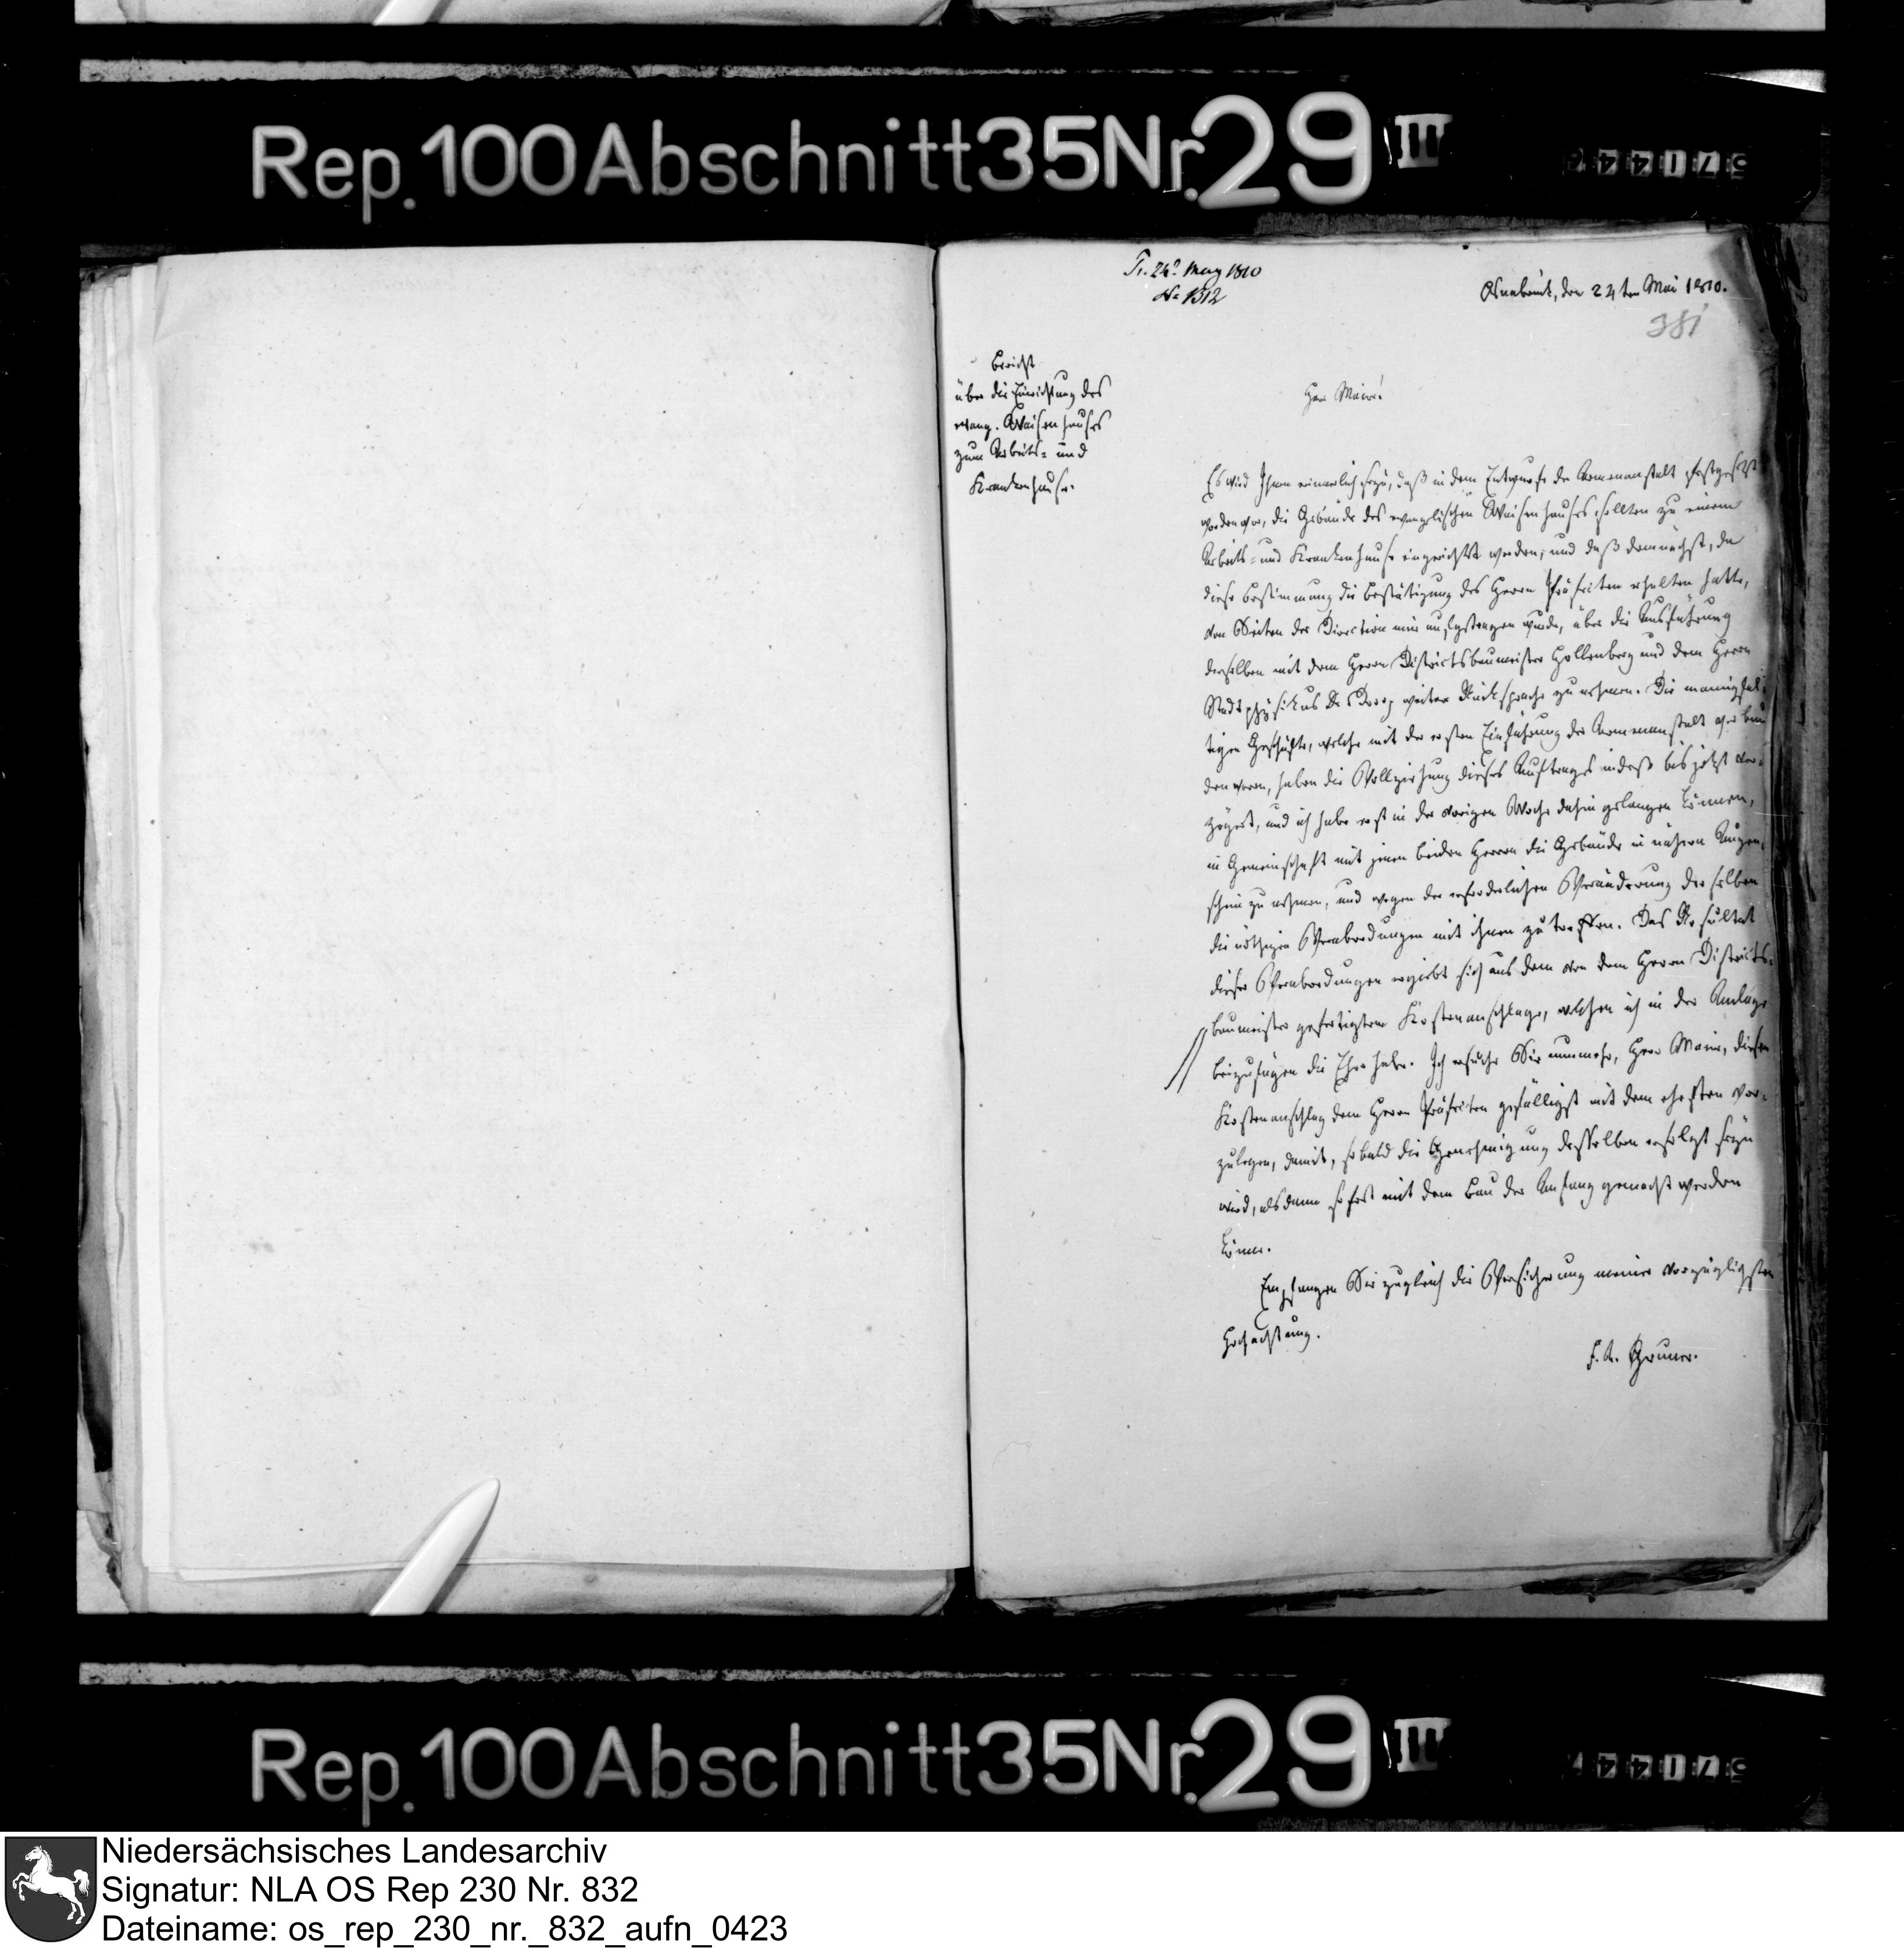 Rep. 100 Abschnitt 35 Nr. 29 III
571446
Pr. 24t May 1810
No 1312
Osnabrück, den 24ten Mai 1810.
381
Bericht
über die Einrichtung des
evang. Waisenhauses
zum Arbeits- und
Krankenhause.
Herr Maire!
Es wird Ihnen erinnerlich seyn, daß in dem Entwurfe der Armenanstalt festgesetzt
worden war, die Gebäude des evangelischen Waisenhauses sollten zu einem
Arbeits- und Krankenhause eingerichtet werden; und daß demnächst, da
diese Bestimmung die Bestätigung des Herrn Präfecten erhalten hatte,
von Seiten der Direction mir aufgetragen wurde, über die Ausführung
derselben mit dem Herrn Districtsbaumeister Hollenberg und dem Herrn
Stadtphysikus Dr. weiter Rücksprache zu nehmen. Die mannigfal-
tigen Geschäfte, welche mit der ersten Einführung der Armenanstalt verbun
den waren, haben die Vollziehung dieses Auftrages indeß bis jetzt ver-
zögert, und ich habe erst in der vorigen Woche dahin gelangen können,
in Gemeinschaft mit jenen beiden Herren die Gebäude in nähern Augen-
schein zu nehmen, und wegen der erforderlichen Veränderung derselben
die nöthigen Verabredungen mit ihnen zu treffen. Das Resultat
dieser Verabredungen ergiebt sich aus dem von dem Herrn Districts-
baumeister gefertigten Kostenanschlage, welchen ich in der Anlage
beizufügen die Ehre habe. Ich ersuche Sie nunmehr, Herr Maire, diesen
Kostenanschlag dem Herrn Präfecten gefälligst mit dem ehesten vor-
zulegen, damit, sobald die Genehmigung desselben erfolgt seyn
wird, alsdann sofort mit dem Bau der Anfang gemacht werden
könne.
Empfangen Sie zugleich die Versicherung meiner vorzüglichsten
Hochachtung.
F. A. Gruner.
Rep. 100 Abschnitt 35 Nr. 29 III
571447
Niedersächsisches Landesarchiv
Signatur: NLA OS Rep 230 Nr. 832
Dateiname: os_rep_230_nr._832_aufn_0423